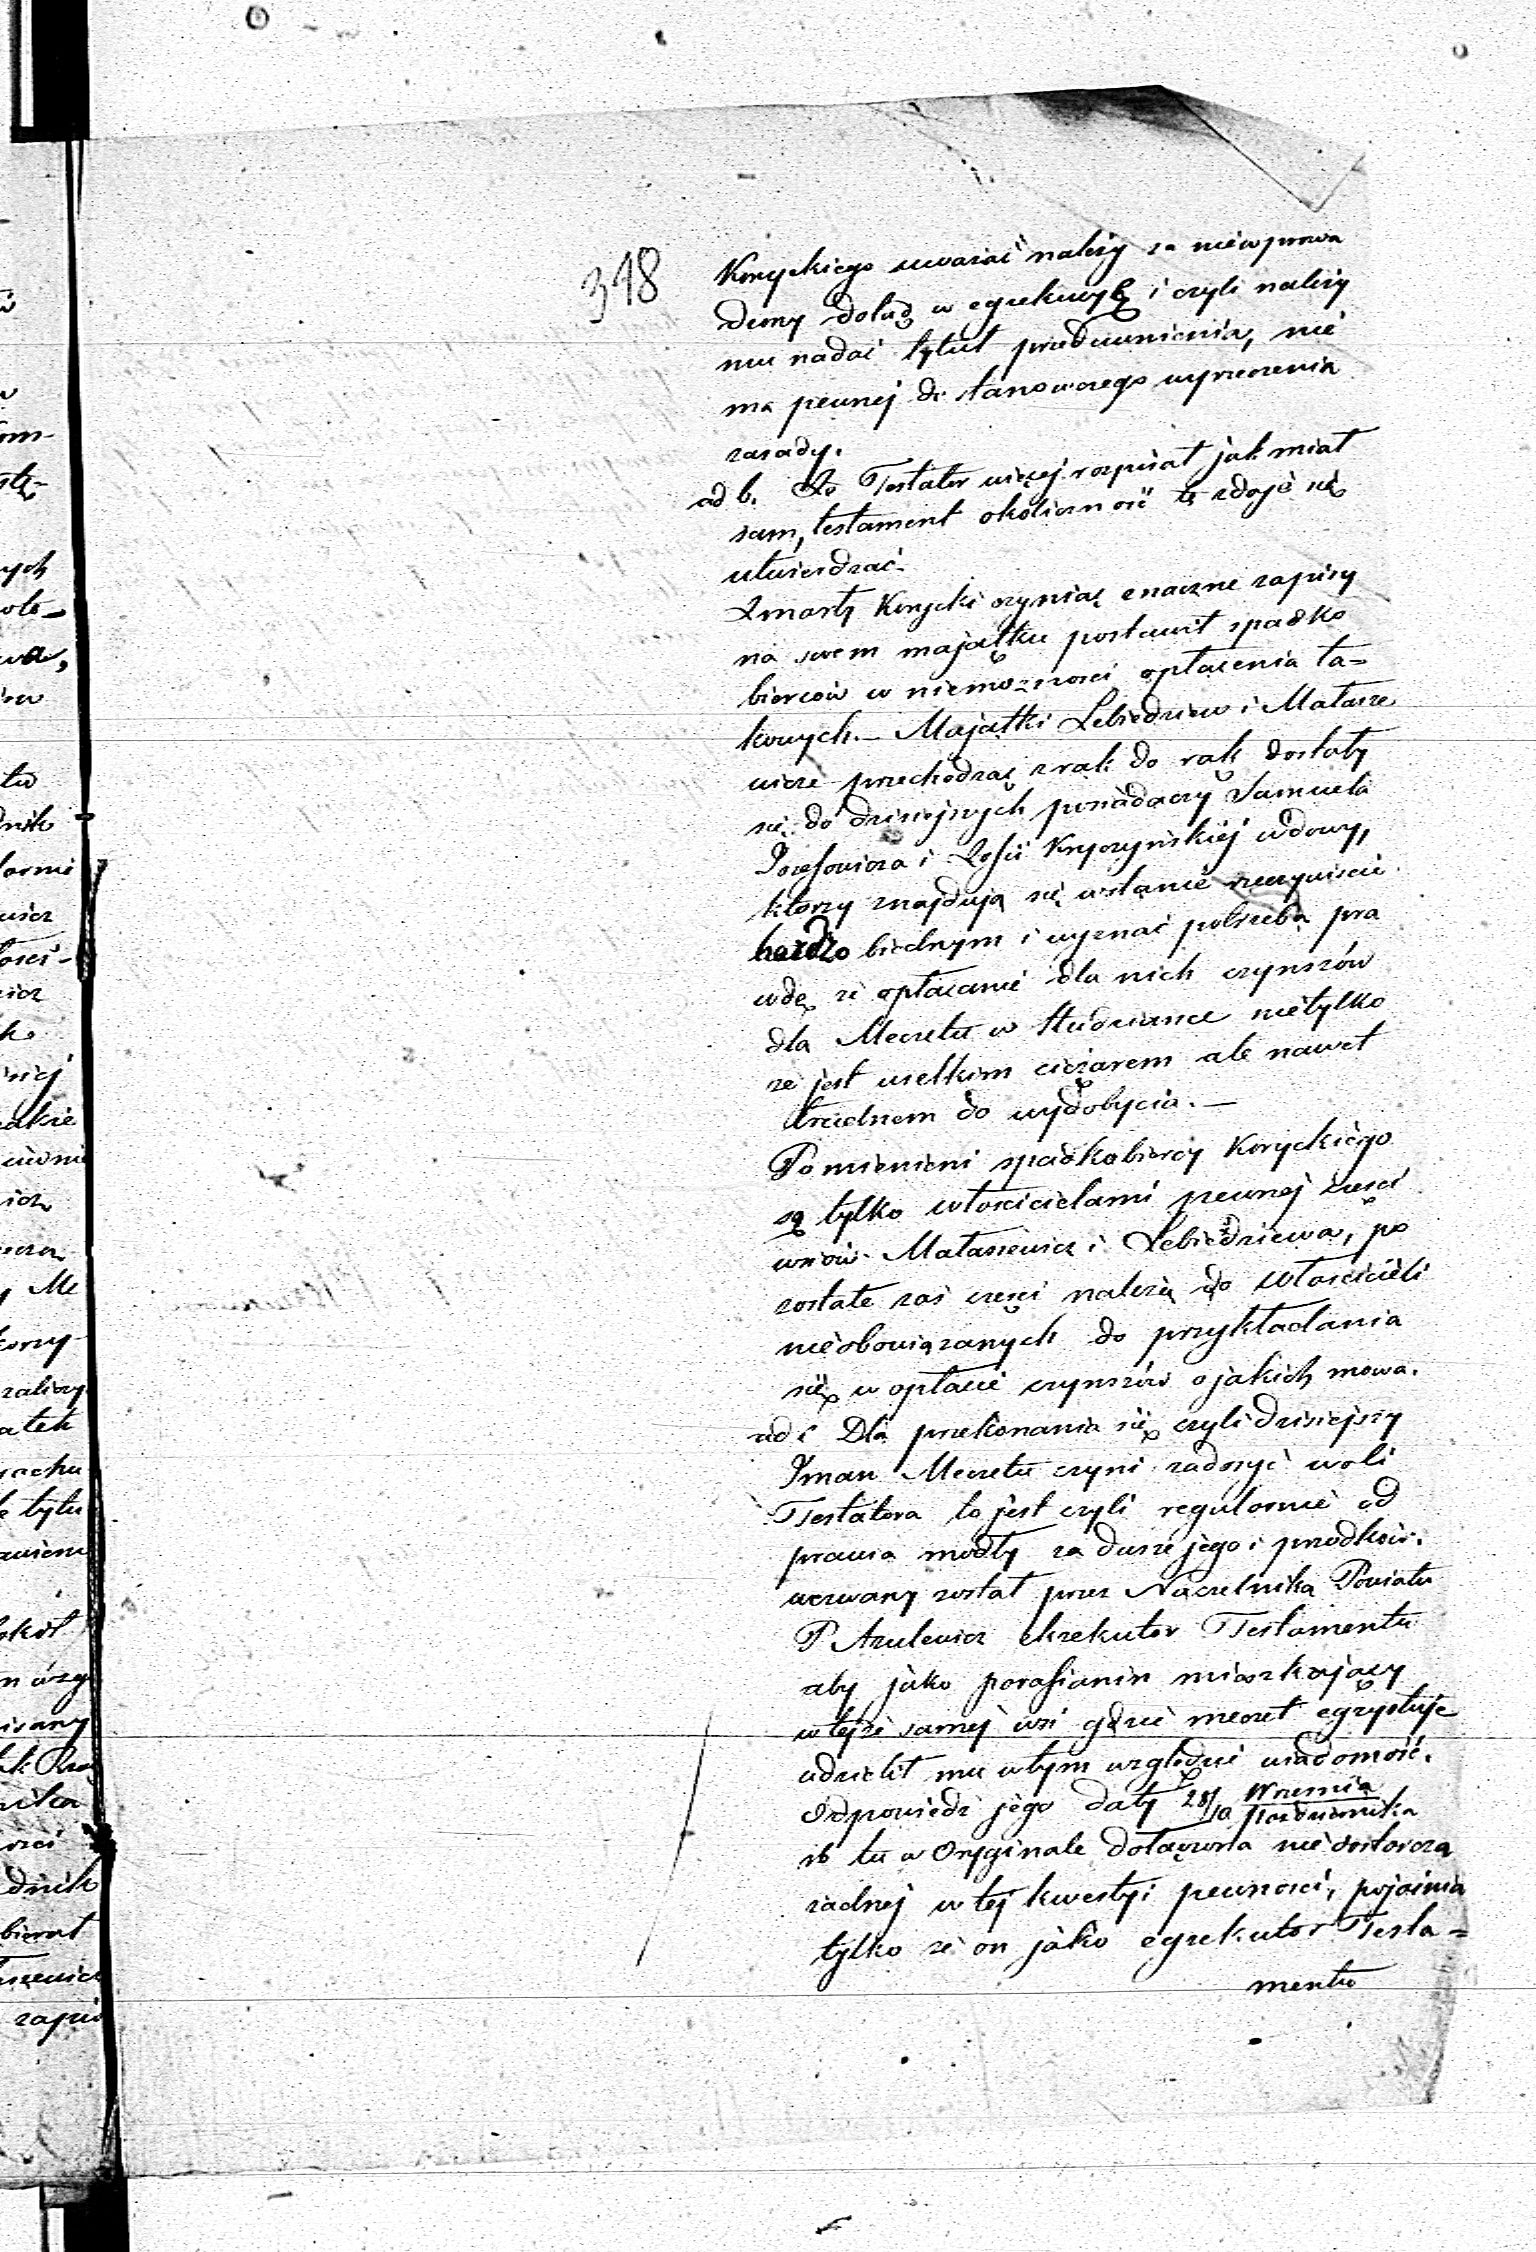 318
Koryckiego uważać należy za niewprowa
dzony dotąd w egzekucyę i czyli należy
mu nadać tytuł przedawnienia, nie
ma pewnej do stanowczego wyrzeczenia
zasady.
ad b. Że Testator więcej rozpisał jak miał
sam, testament okoliczność tę zdaje się
utwierdzać.
Zmarły Korycki czyniąc znaczne zapisy
na swem majątku postawił spadko
bierców w niemożności opłacenia ta=
kowych.— Majątki Lebiedziew i Małasze
wicze przechodząc z rąk do rąk dostały
się do dzisiejszych posiadaczy Samuela
Józefowicza i Zofii Kryczyńskiej wdowy,
którzy znajdują się w stanie rzeczywiście
bardzo biednym i wyznać potrzeba pra
wdę że opłacanie dla nich czynszów
dla Meczetu w Studziance nietylko
że jest wielkim ciężarem ale nawet
trudnem do wydobycia.—
Pomienieni spadkobiercy Koryckiego
są tylko włościcielami pewnej części
wsiów Małaszewicz i Lebiedziewa, po
zostałe zaś części należą do włościcieli
nieobowiązanych do przykładania
się w opłacie czynszów o jakich mowa.
ad c Dla przekonania się czyli dzisiejszy
Iman Meczetu czyni zadosyć woli
Testatora to jest czyli regularnie od
prawia modły za duszę jego i przodków.
wezwany został przez Naczelnika Powiatu
P Azulewicz ekzekutor Testamentu
aby jako parafianin mieszkający
w tejże samej wsi gdzie meczet egzystuje
udzielił mu w tym względzie wiadomość.
Odpowiedź jego daty 28/10 Września
Października
rb tu w Oryginale dołączona nie dostarcza
żadnej w tej kwestyi pewności, pojaśnia
tylko że on jako egzekutor Testa=
mentu